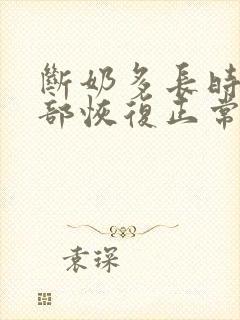 斷奶多長時
部恢復正常
袁琛